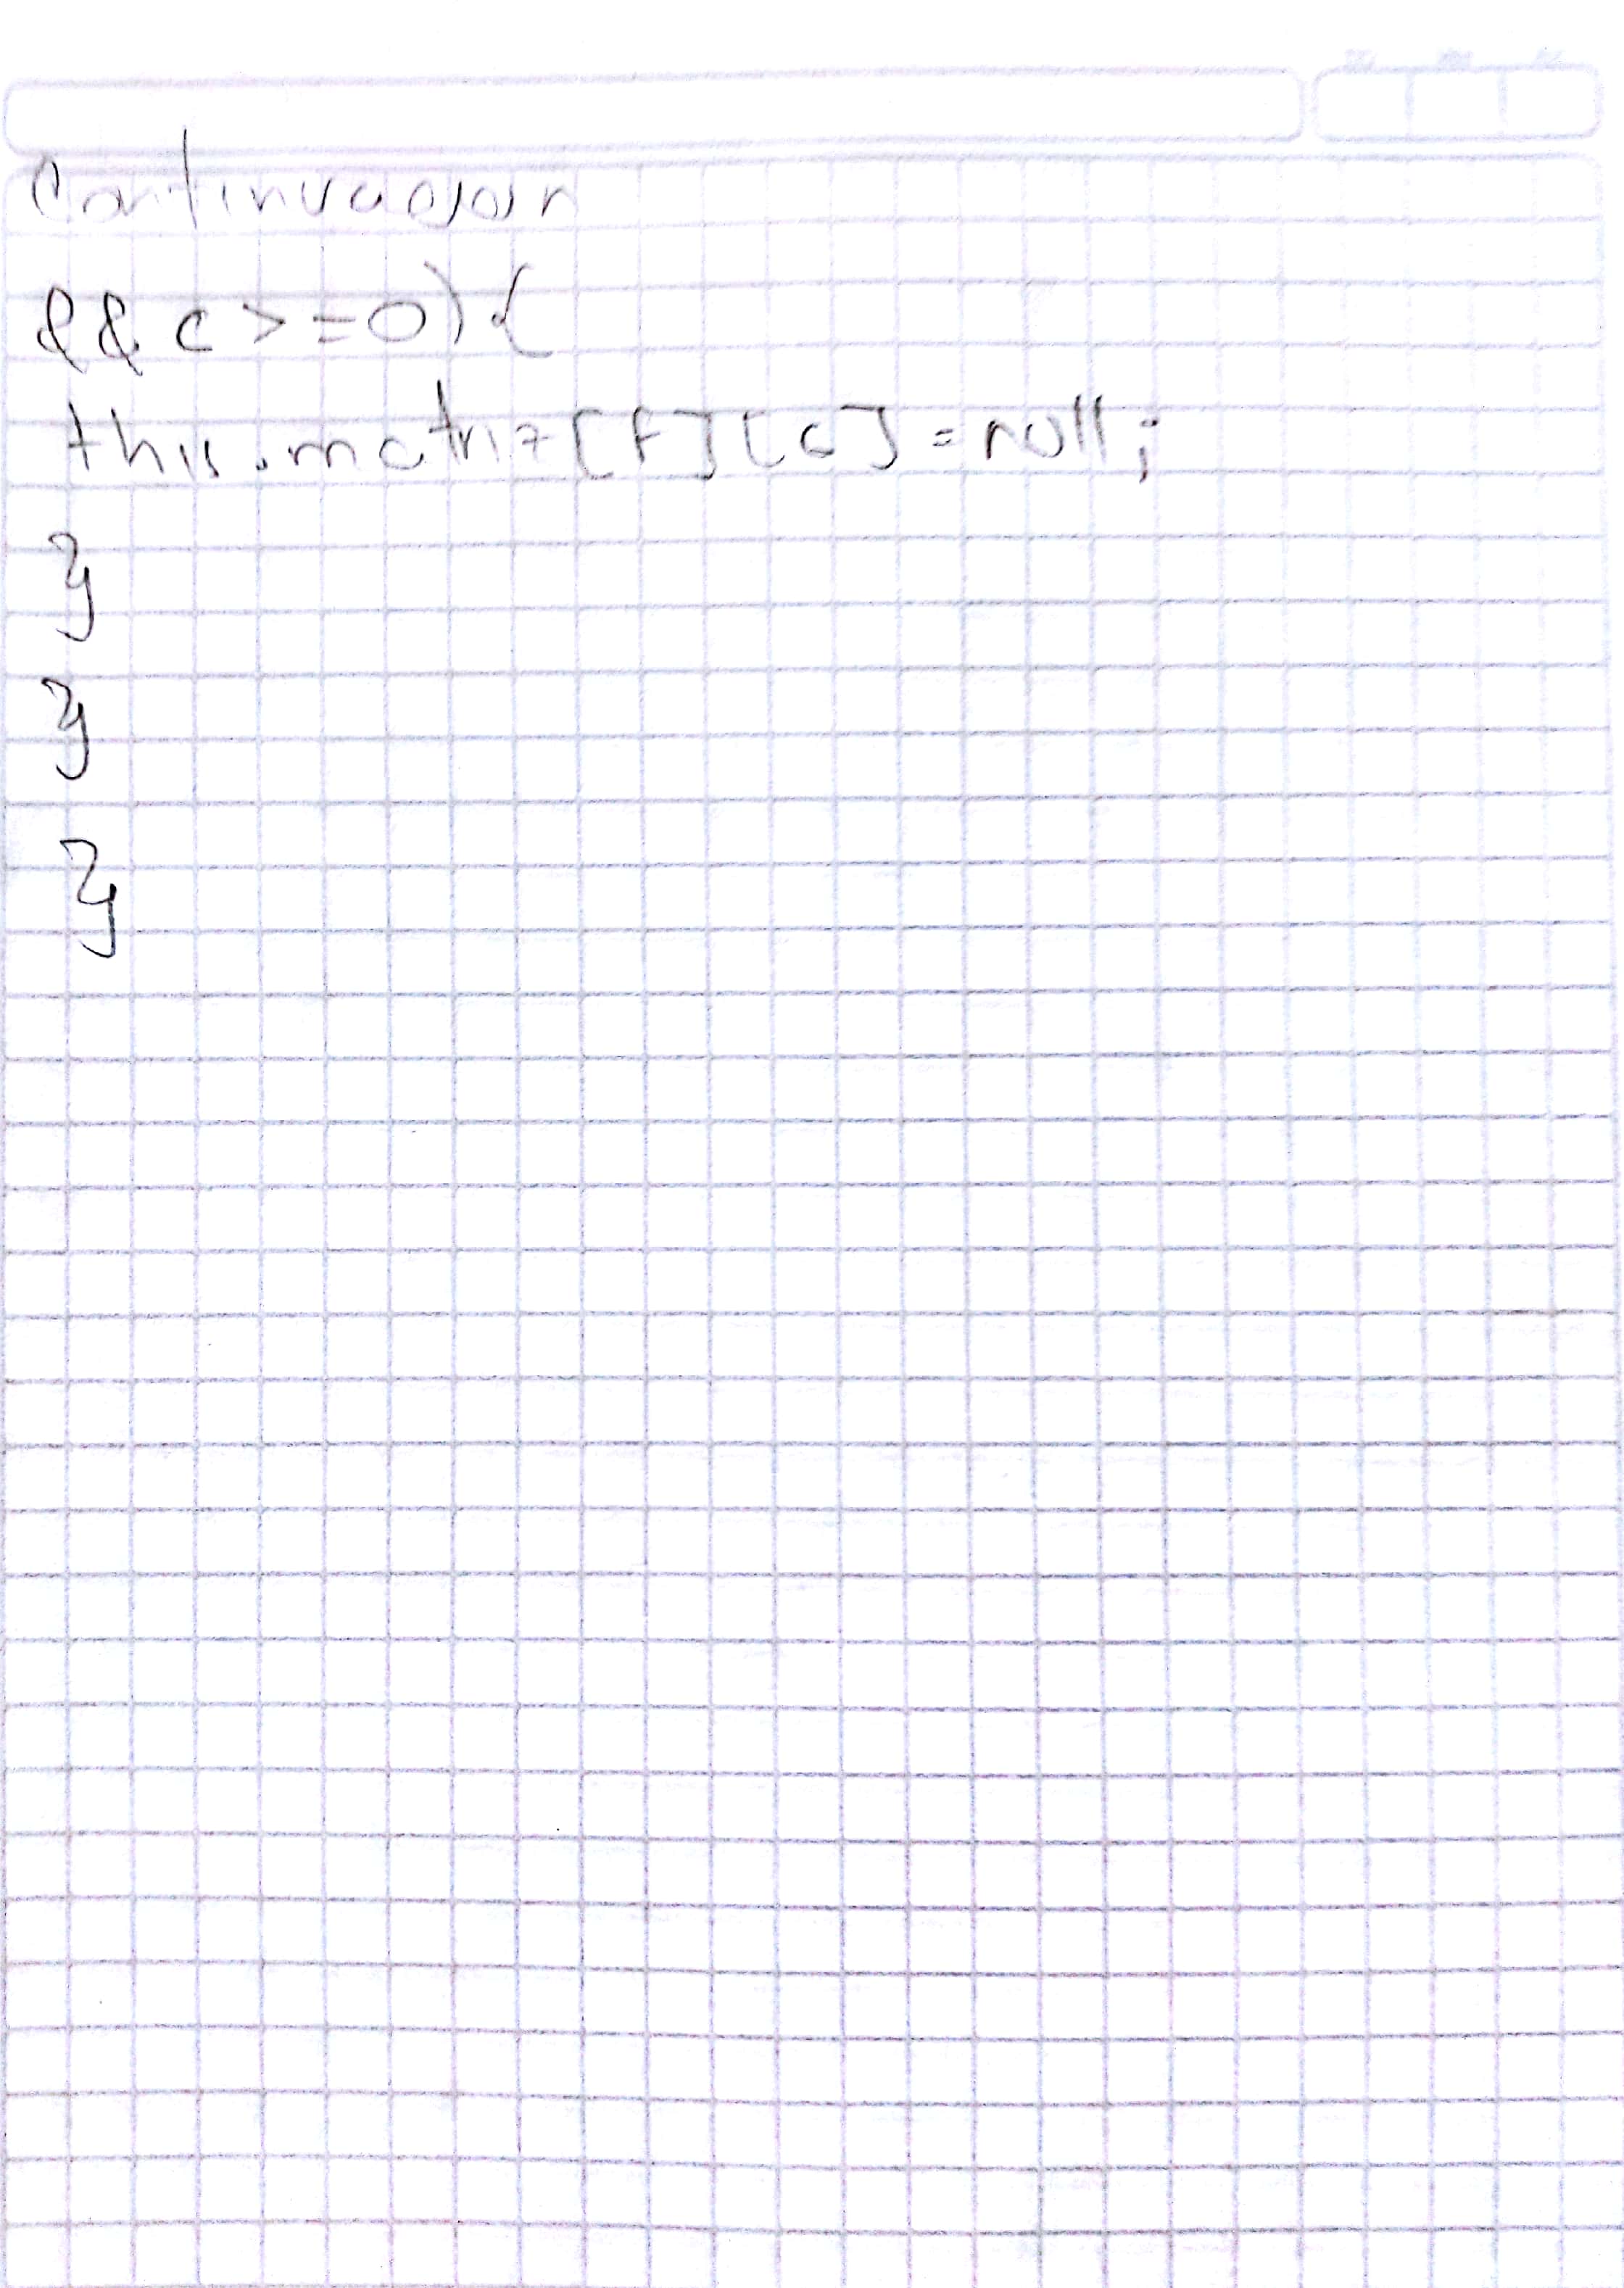 Continuacion
&& c >= 0) {
this.matriz[f][c] = null;
}
}
}